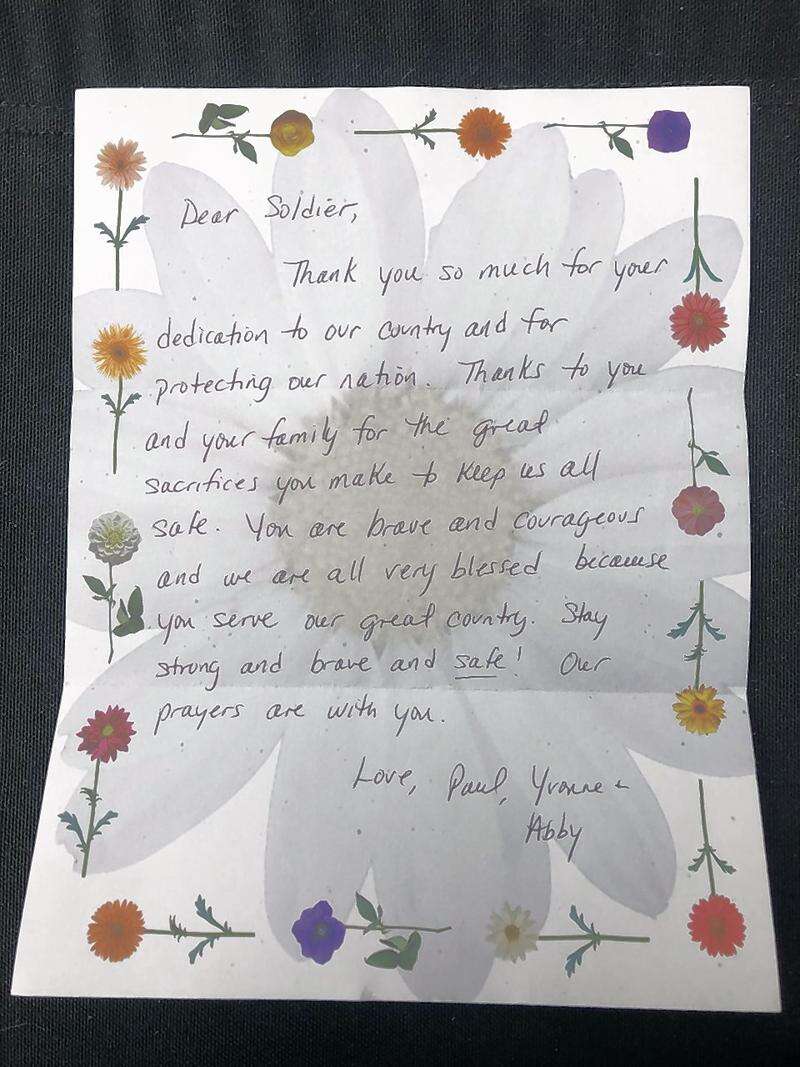 Dear Soldier,
Thank you so much for your
dedication to our country and for
protecting our nation. Thanks to you
and your family for the great
sacrifices you make to keep us all
safe. You are brave and courageous
and we are all very blessed because
you serve our great country. Stay
strong and brave and safe! Our
prayers are with you.
Love, Paul, Yvonne +
Abby